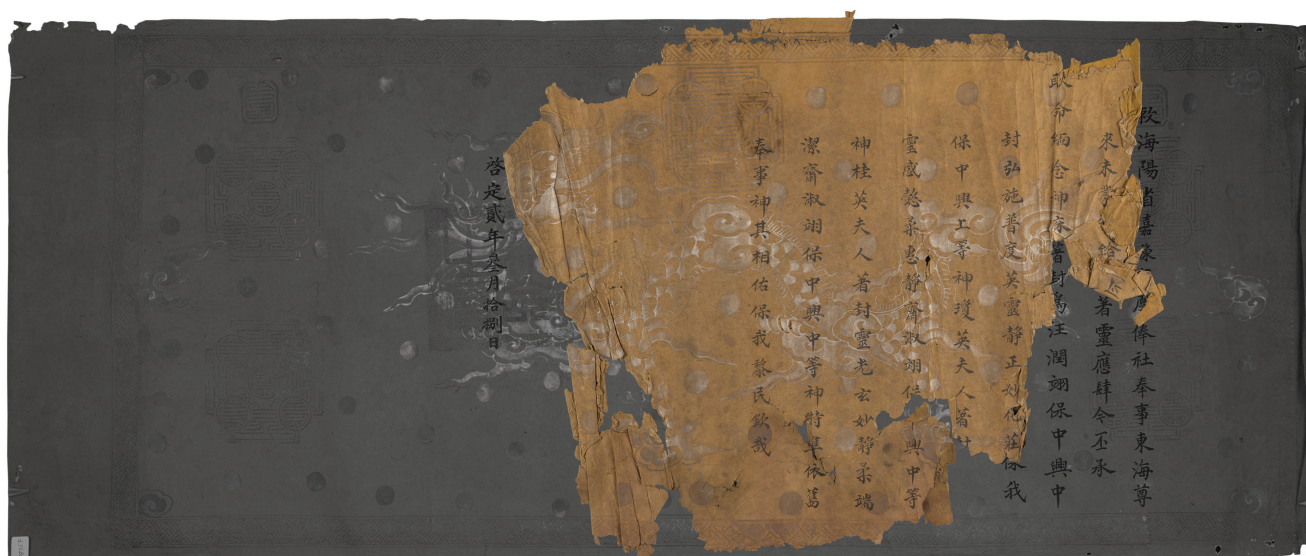 敕海陽省嘉俸社奉事東海尊
來未著靈應肆今丕承
耿命緬念神庥著封爲汪潤翊保中興中
封弘施普度英靈靜正妙化莊保我
保中興上等神瓊英夫人著封
靈感慈柔惠靜齋淑翊保中興中等
神桂英夫人著封靈光玄妙靜柔端
潔齋淑翊保中興中等神特準依舊
奉事神其相佑保我黎民欽哉
啓定貳年叄月拾捌日